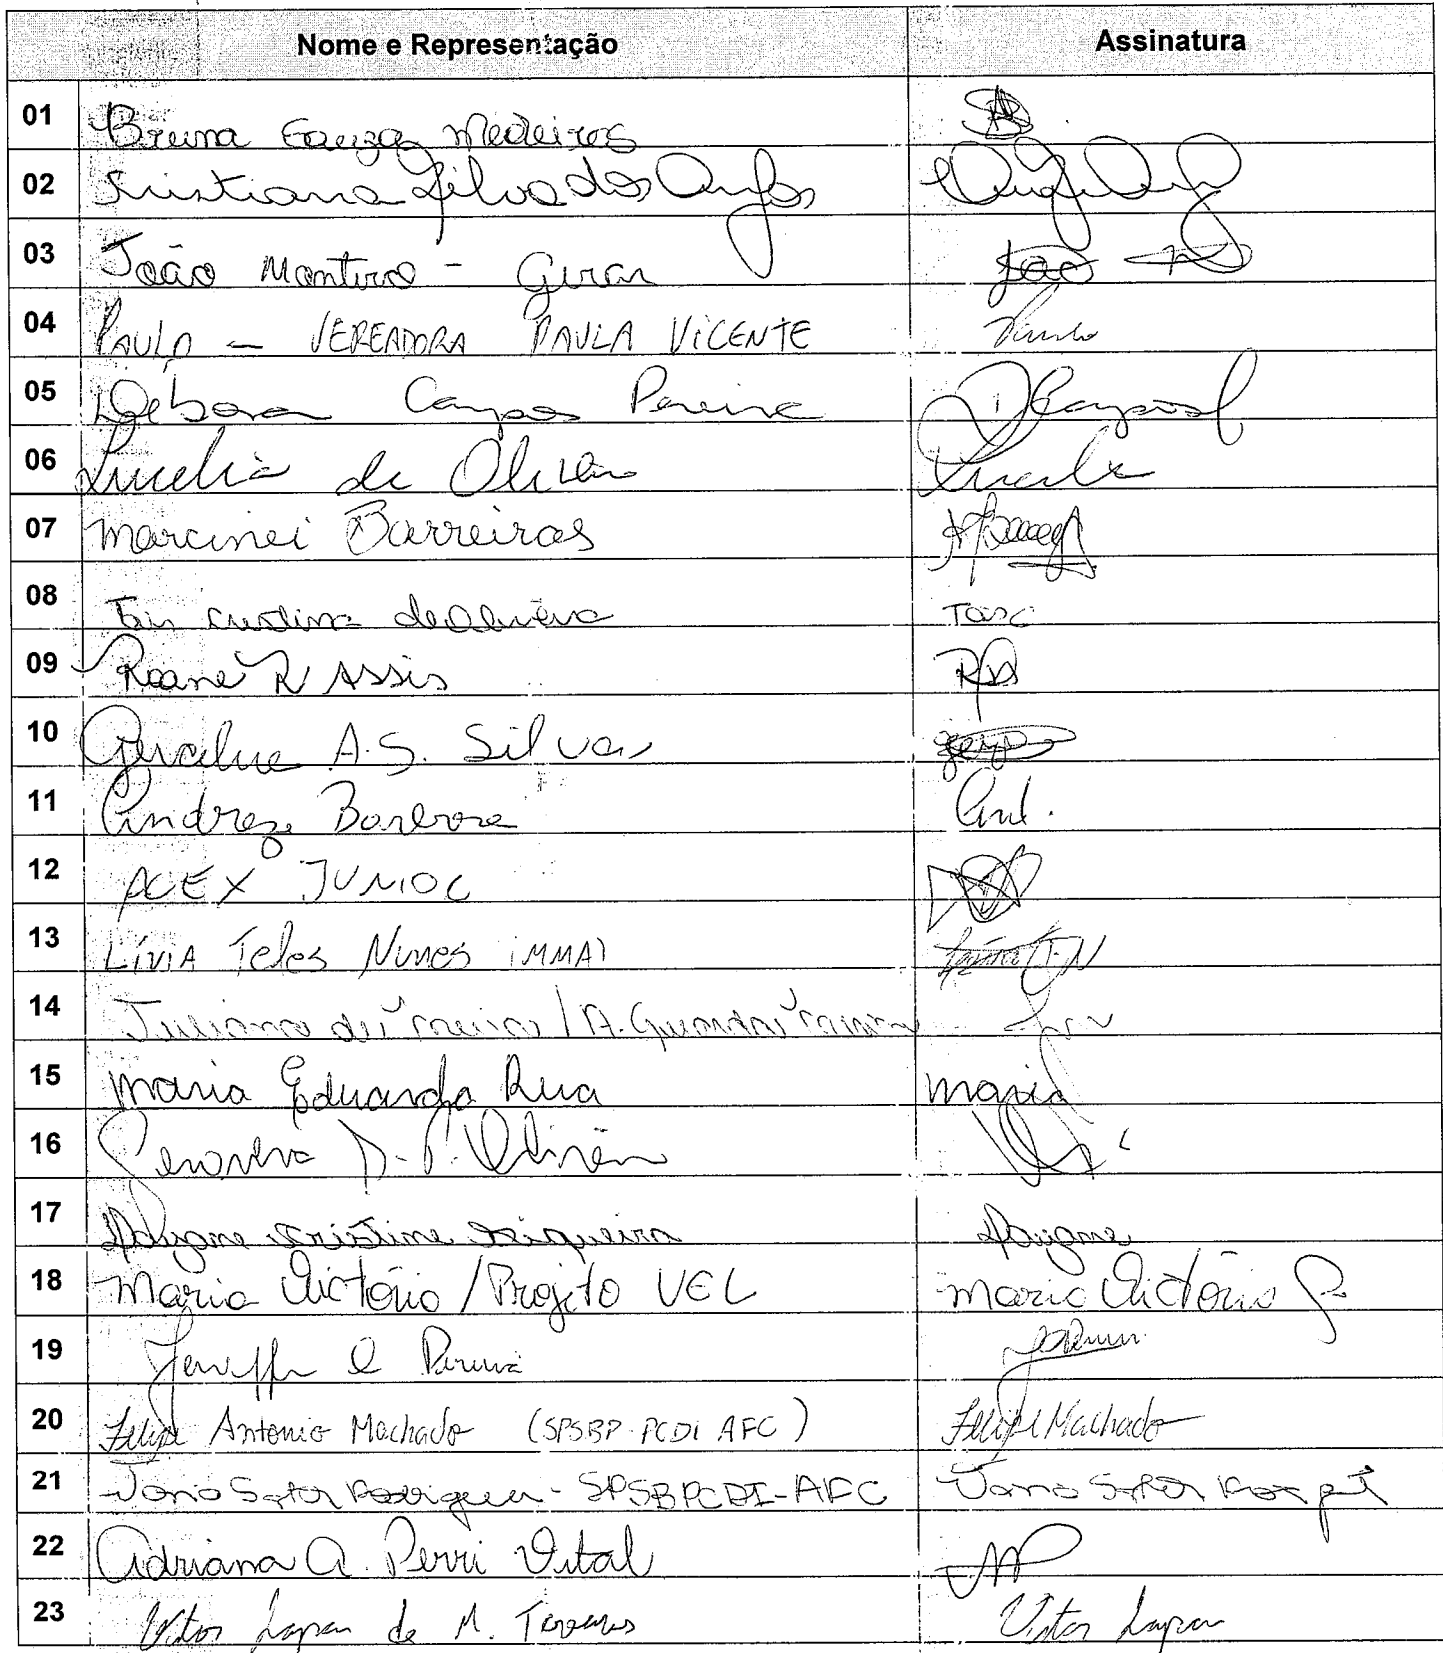 Nome e Representação Assinatura
01 Bruna Souza Medeiros
02 Cristiana Silva dos Anjos
03 João Monteiro - Gerar João
04 PAULO - VEREADORA PAULA VICENTE Paulo
05 Debora Campos Pereira DCampos
06 Lucelia de Oliveira Lucelia
07 Marcinei Barreiros
08 Tais Cristina de Oliveira Taisc
09 Roane R Assis RA
10 Geraline A.S. Silva
11 Andreza Barbosa And.
12 ALEX JUNIOR
13 LÍVIA Teles Nunes (MMA)
14 Juliana de / A. Guarda
15 Maria Eduarda Rua Maria
16 Oliveira
17 Dayane Cristine Siqueira Dayane
18 Maria Victória / Projeto VEL Maria Victória P.
19 Jeniffer Pereira
20 Felipe Antonio Machado (SPSBP-PCDI AFC) Felipe Machado
21 Vania Rodrigues - SPSBPCDI-AFC Vania
22 Adriana A. Perri Vital AP
23 Vitor de M. Tavares Vitor